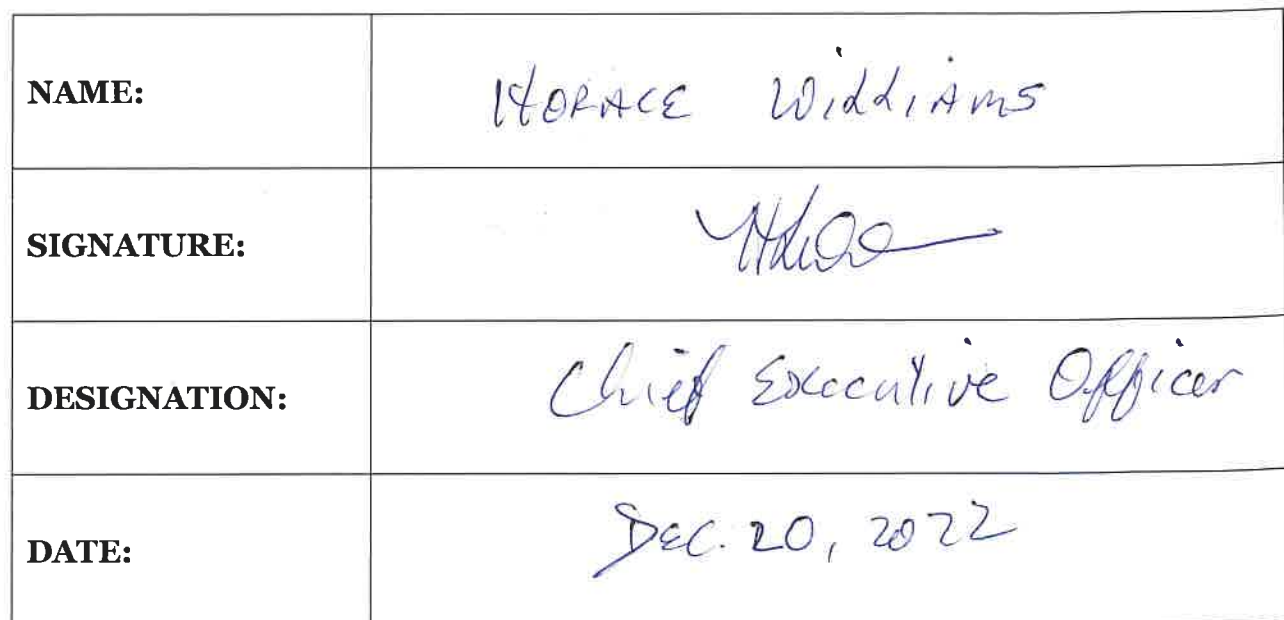 NAME: HORACE WILLIAMS
SIGNATURE:
DESIGNATION: Chief Executive Officer
DATE: Dec. 20, 2022